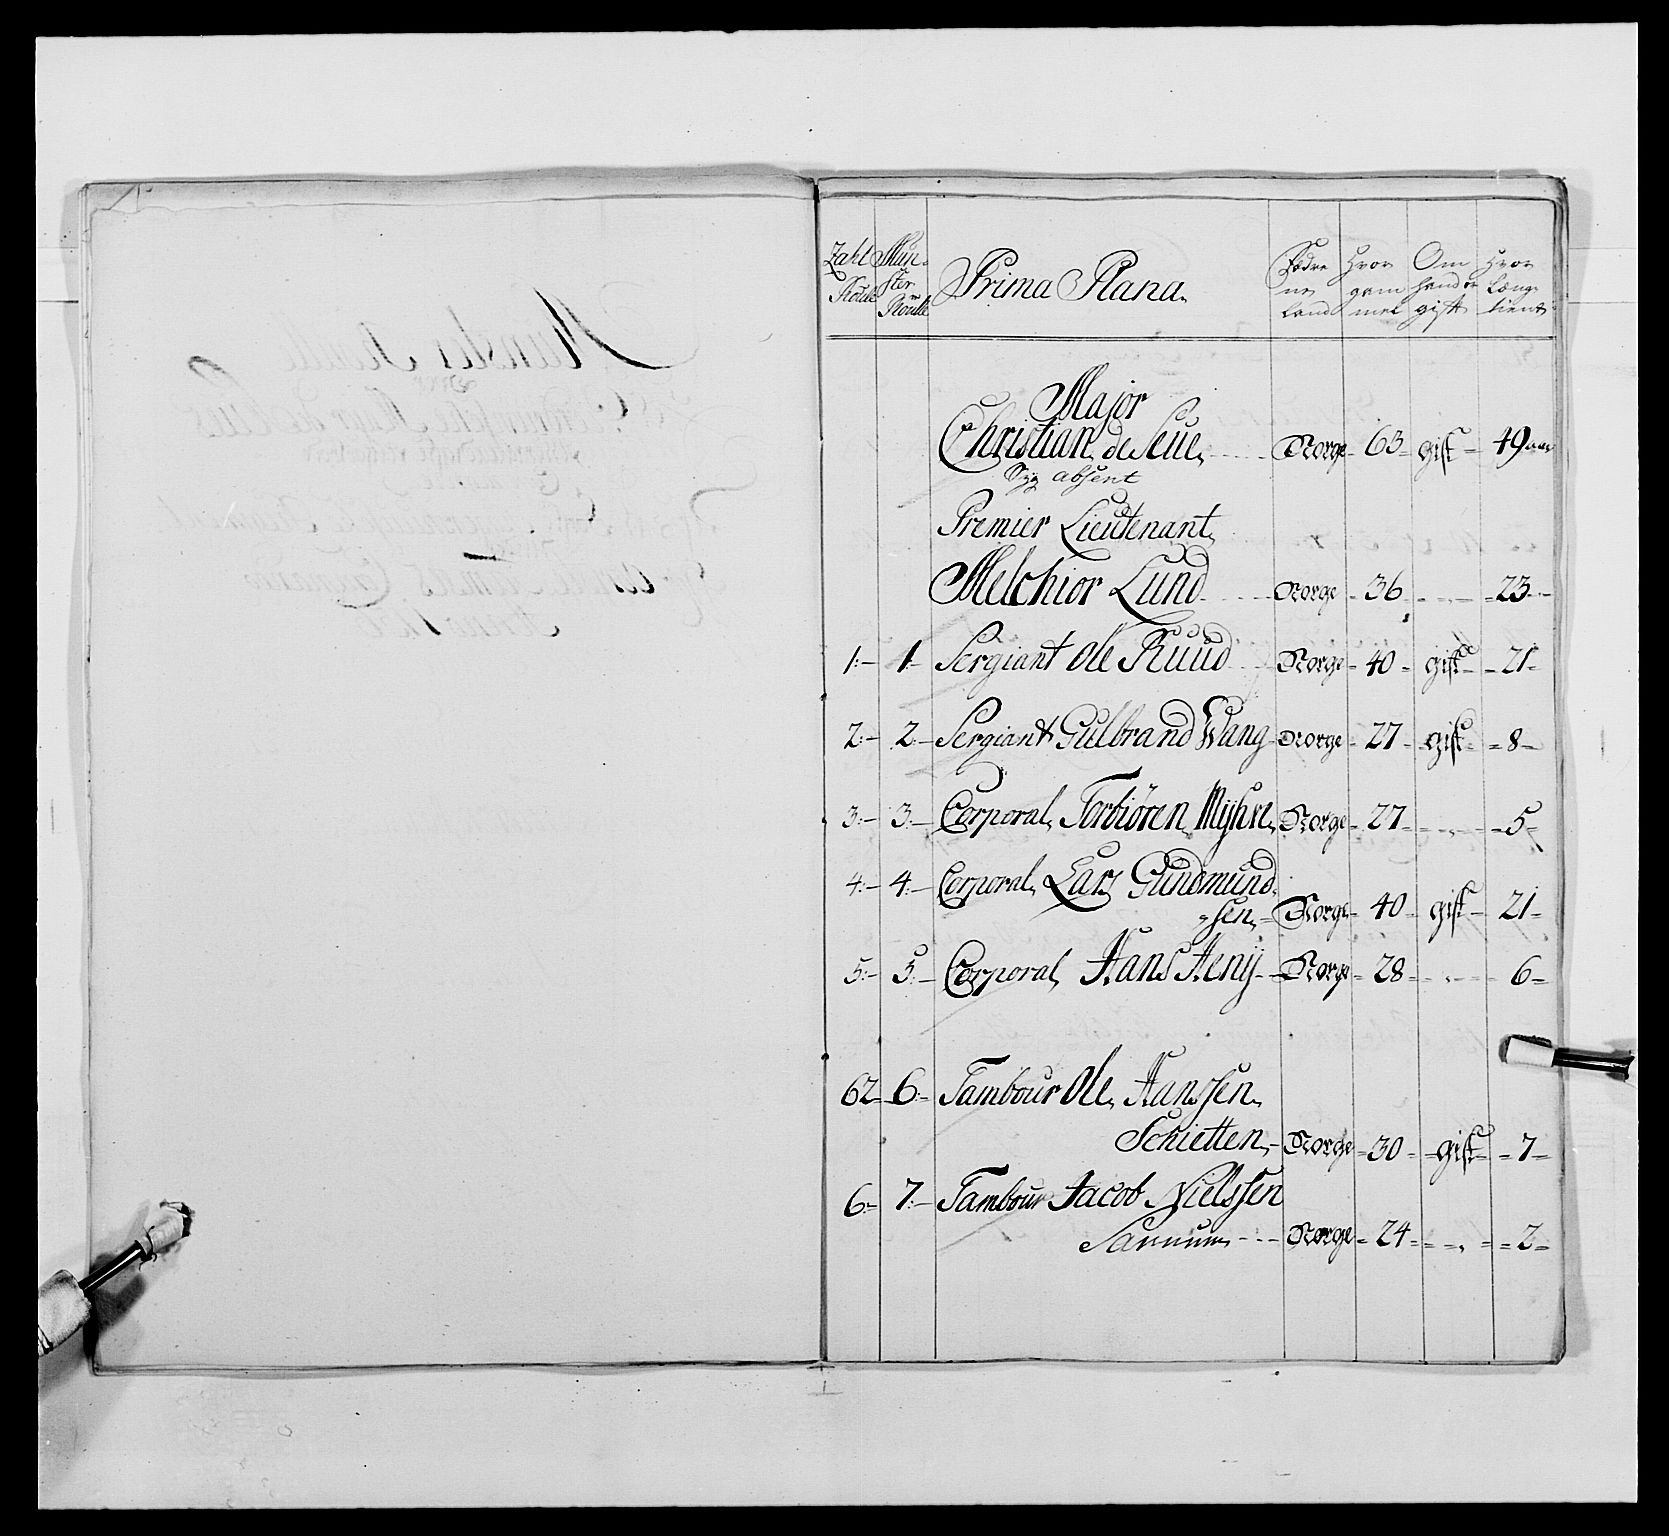 Zahl Roulle
Mun-ster Roulle
Prima Plana
Fædrene land
Hvor gammel
Om hand er gift
Hvor længe tient
Major
Christian de Seue Norge 63 gift 49 aar
Syg absent
Premier Lieutenant
Melchior Lund Norge 36 23
1 1 Sergiant Ole Ruud Norge 40 gift 21
2 2 Sergiant Gulbrand Wang Norge 27 gift 8
3 3 Corporal Torbiören Myhre Norge 27 5
4 4 Corporal Lars Gundmund
sen Norge 40 gift 21
5 5 Corporal Hans Henÿ Norge 28 6
62 6 Tambour Ole Hanssen
Schietten Norge 30 gift 7
6 7 Tambour Jacob Nielssen
Norge 24 2